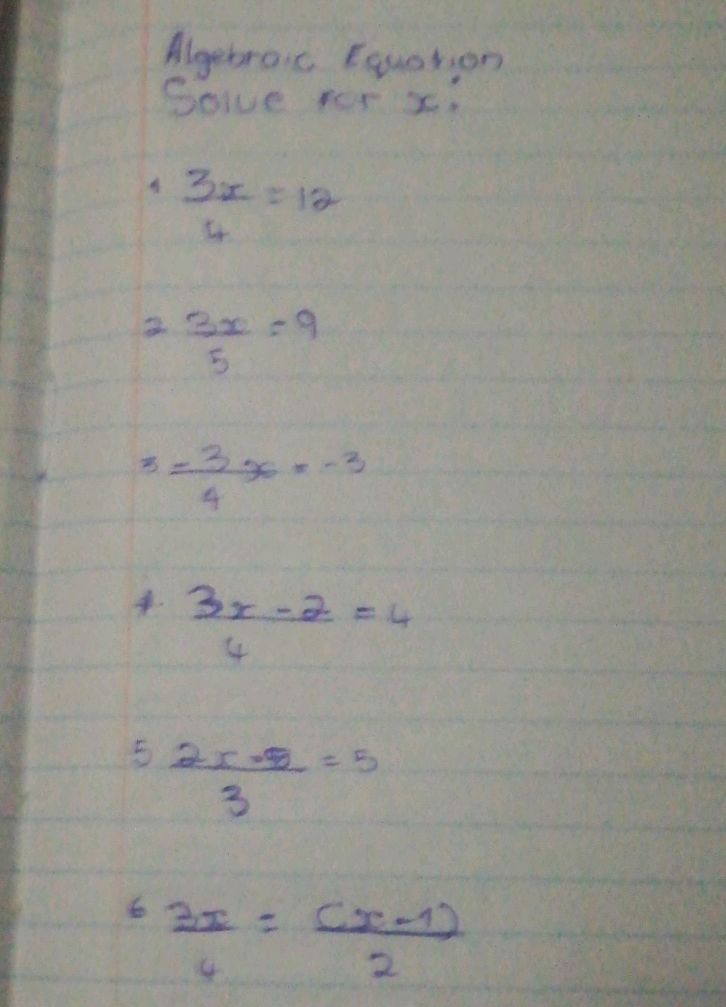 Algebraic Equation
Solve for x:
1 3x/4 = 12
2 3x/5 = 9
3 -3x/4 = -3
4 3x - 2/4 = 4
5 2x - 5/3 = 5
6 3x/4 = (x-1)/2